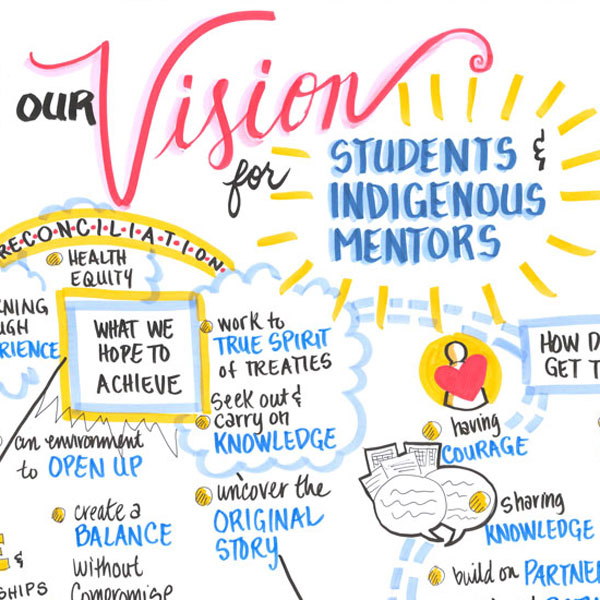 OUR Vision
for
STUDENTS &
INDIGENOUS
MENTORS
RECONCILIATION
HEALTH
EQUITY
WHAT WE
HOPE TO
ACHIEVE
work to
TRUE SPIRIT
of TREATIES
seek out &
carry on
KNOWLEDGE
an environment
to OPEN UP
create a
BALANCE
without
Compromise
uncover the
ORIGINAL
STORY
&
HOW D
GET T
having
COURAGE
sharing
KNOWLEDGE
build on PARTNE